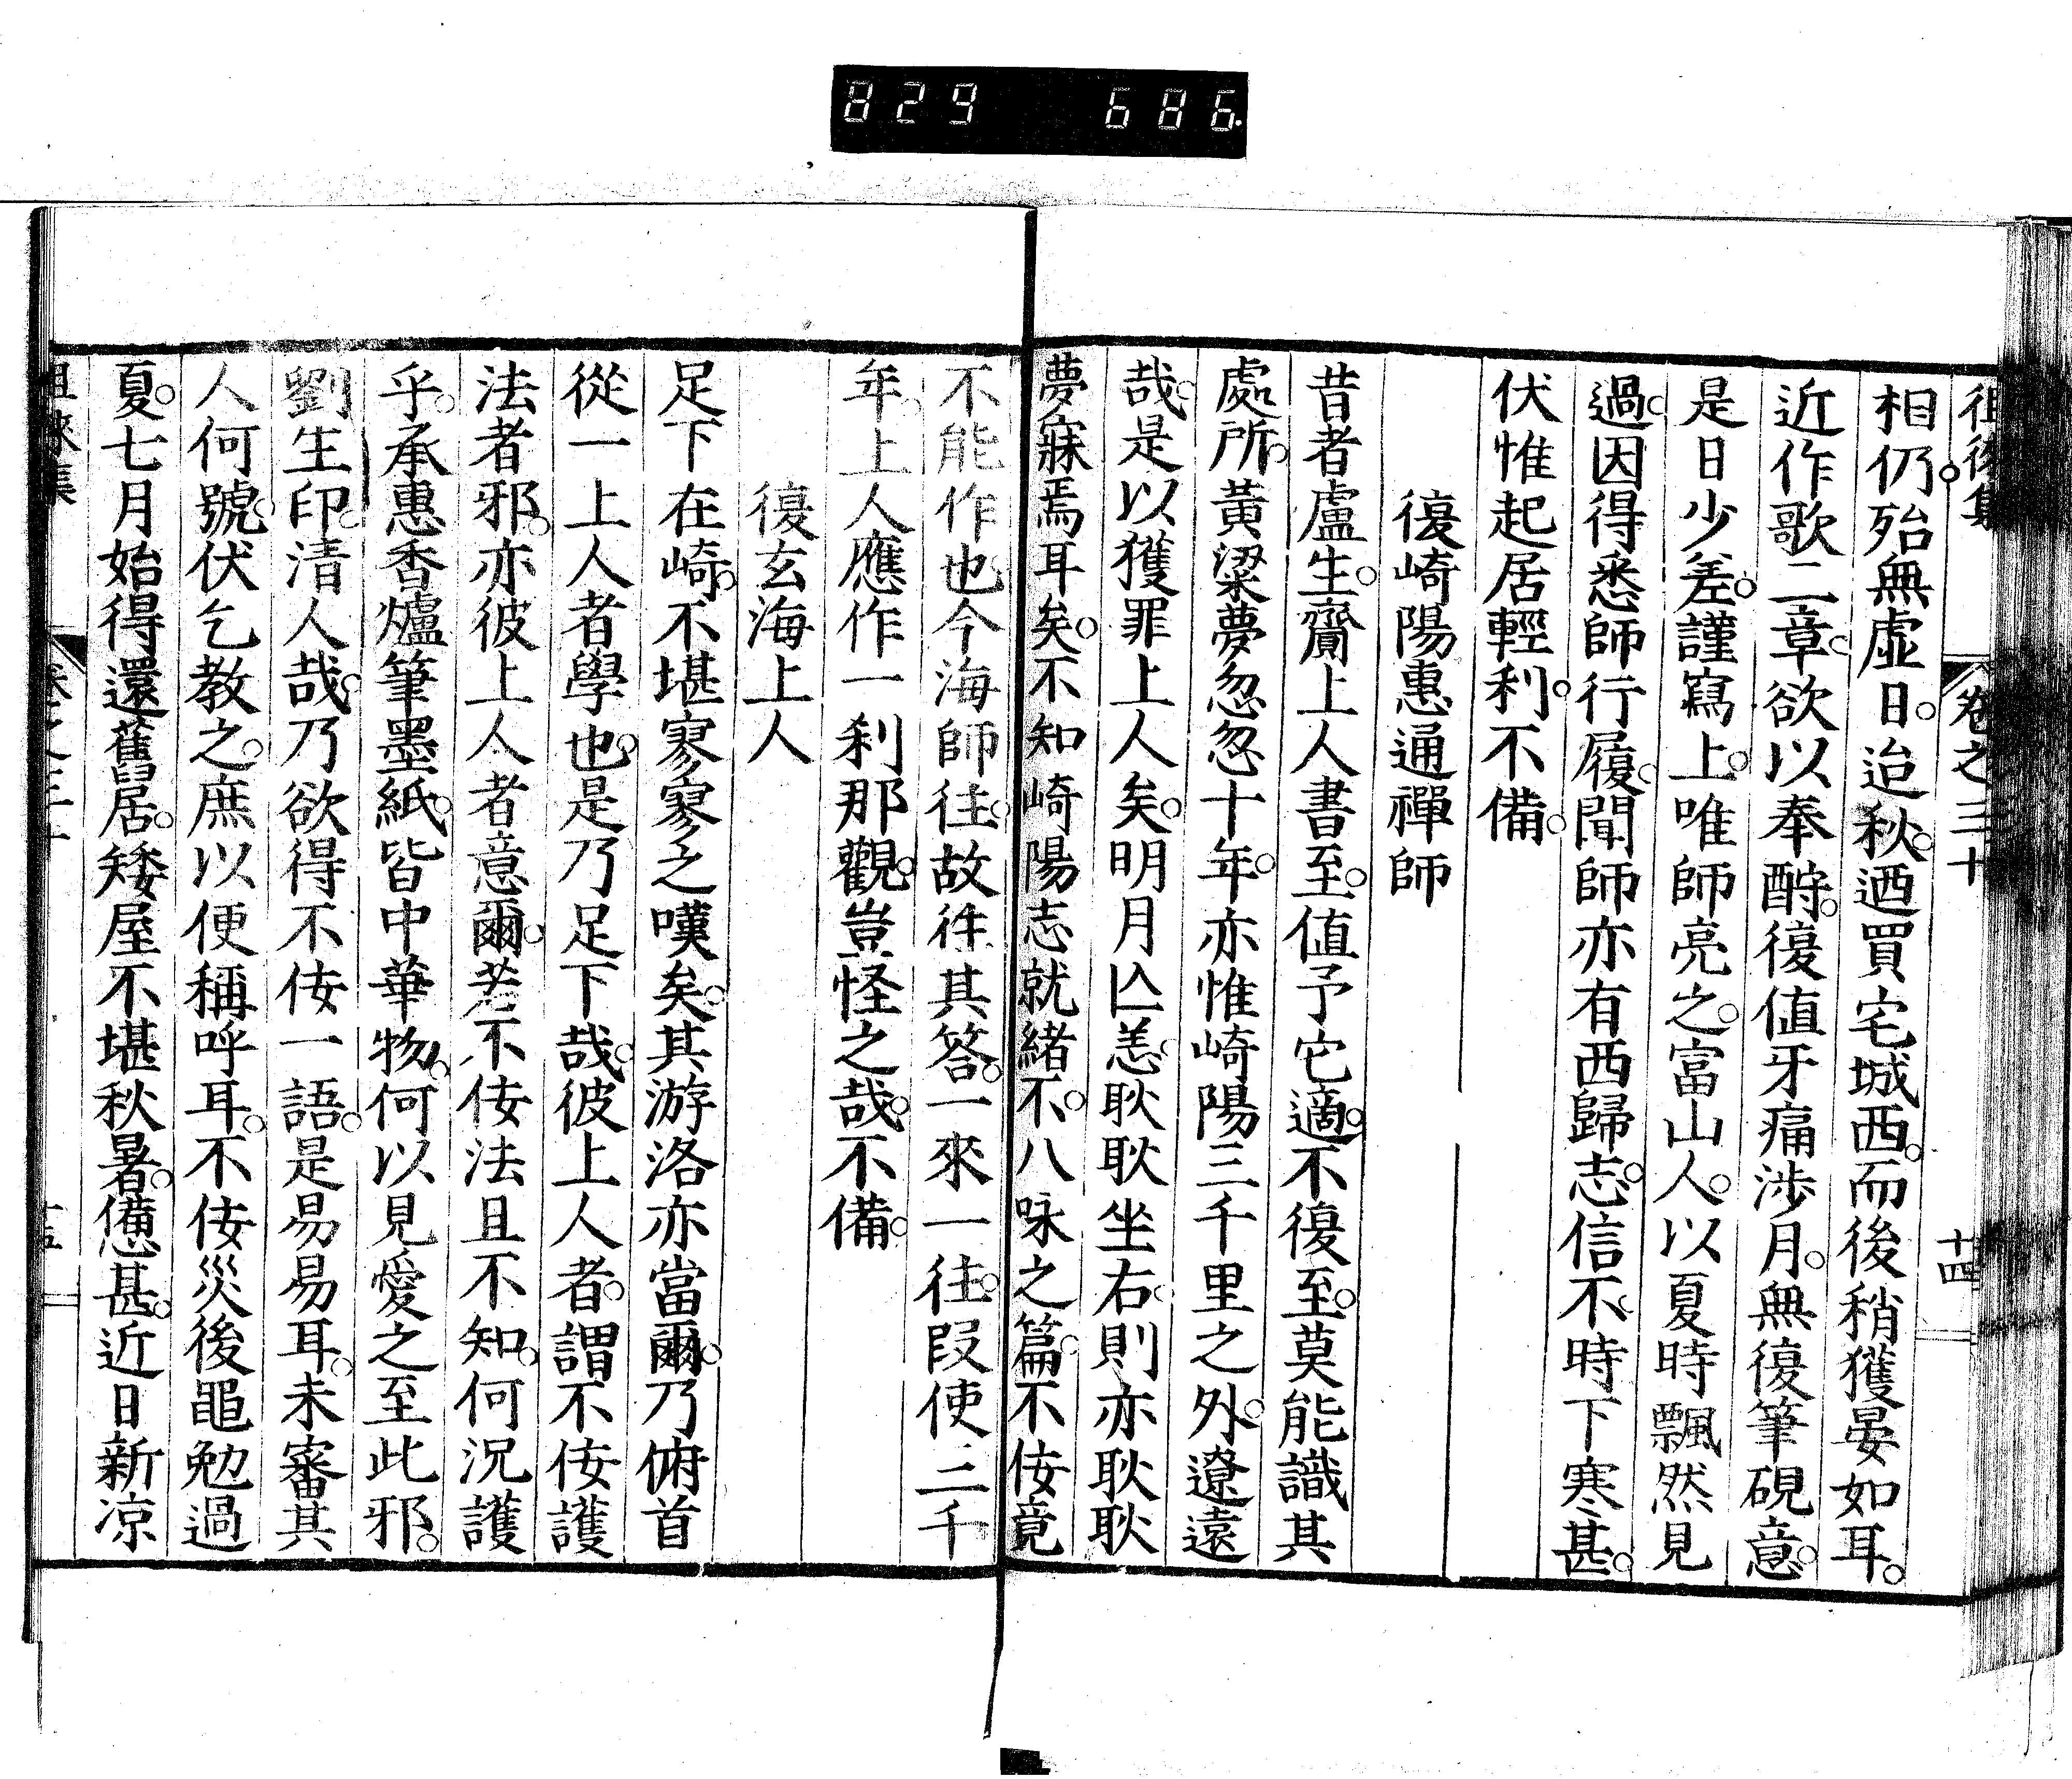 829 686
徂徠集 卷之三十 十四
相仍。殆無虛日。迨秋。迺買宅城西。而後稍獲晏如耳。
近作歌二章。欲以奉酧。復値牙痛涉月。無復筆硯意。
是日少差。謹寫上。唯師亮之。富山人。以夏時飄然見
過。因得悉師行履。聞師亦有西歸志。信不。時下寒甚。
伏惟起居輕利。不備。
復崎陽惠通禪師
昔者盧生。齎上人書至。値予它適。不復至。莫能識其
處所。黃粱夢忽忽十年。亦惟崎陽三千里之外。遼遠
哉。是以獲罪上人矣。明月亾恙。耿耿坐右。則亦耿耿
夢寐焉耳矣。不知崎陽志就緒不。八咏之篇。不佞竟
不能作也今海師往。故徃其答。一來一往。叚使三千
年。上人應作一刹那觀。豈怪之哉。不備。
復玄海上人
足下在崎。不堪寥寥之嘆矣。其游洛亦當爾。乃俯首
從一上人者學也。是乃足下哉。彼上人者。謂不佞護
法者邪。亦彼上人者意爾。若不佞法且不知。何況護
乎。承惠香爐筆墨紙。皆中華物。何以見愛之至此邪。
劉生印。清人哉。乃欲得不佞一語。是易易耳。未審其
人何號。伏乞教之。庶以便稱呼耳。不佞災後黽勉過
夏。七月始得還舊居。矮屋不堪秋暑。憊甚。近日新凉
徂徠集 卷之三十 十五